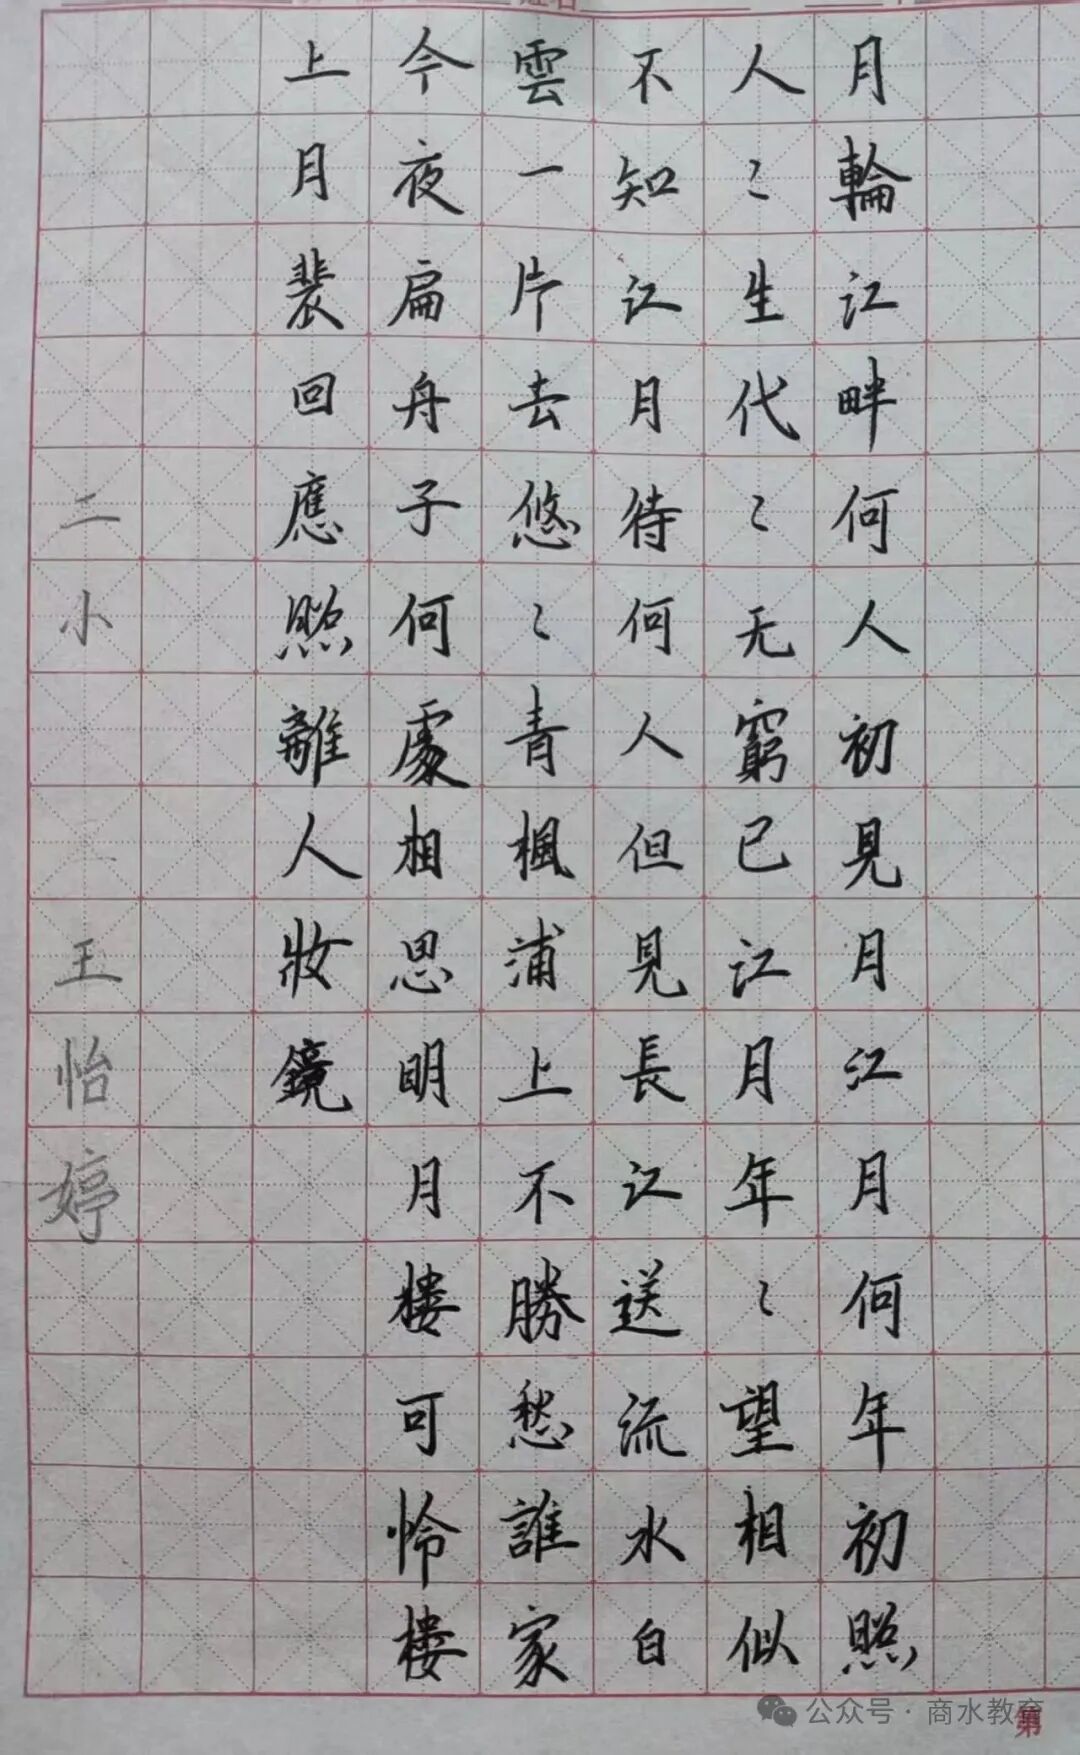 月輪江畔何人初見月江月何年初照
人〻生代〻无窮已江月年〻望相似
不知江月待何人但見長江送流水白
雲一片去悠〻青楓浦上不勝愁誰家
今夜扁舟子何處相思明月樓可怜樓
上月裴回應照離人妝鏡
二小 王怡婷
公众号·商水教育
第